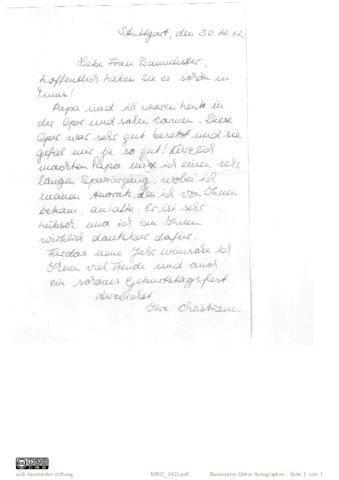 Stuttgart, den 30.12.62
Liebe Frau Baumeister,
hoffentlich haben Sie es schön in
Papa und ich waren heute in
der Oper und sahen Carmen. Diese
Oper war sehr gut besetzt und sie
gefiel mir ja so gut! Kürzlich
machten Papa und ich einen sehr
langen Spaziergang, wobei ich
meinen Anorak, den ich von Ihnen
bekam, anhatte. Er ist sehr
hübsch und ich bin Ihnen
wirklich dankbar dafür.
Für das neue Jahr wünsche ich
Ihnen viel Freude und auch
ein schönes Geburtstagsfest
Herzlichst
Ihre Christiane
willi baumeister stiftung
MBO_0421.pdf
Baumeister-Oehm Autographen : Seite 1 von 1